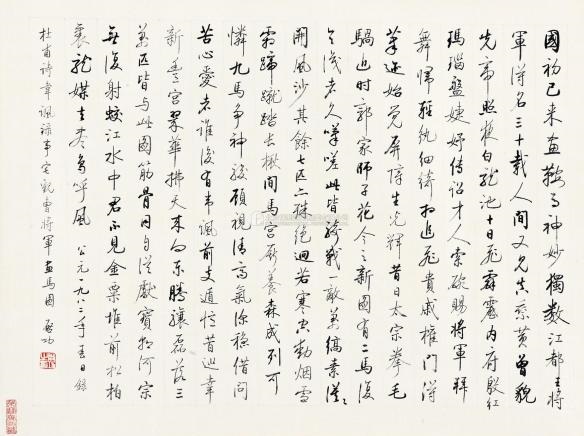 國初已來畫鞍馬神妙獨數江都王將
軍得名三十載人間又見真乘黃曾貌
先帝照夜白龍池十日飛霹靂内府殷紅
瑪瑙盤婕妤傳詔才人索盌賜將軍拜
舞歸輕紈細綺相追飛貴戚權門得
筆迹始覺屏障生光輝昔日太宗拳毛
騧近時郭家師子花今之新圖有二馬復
令識者久嘆嗟此皆騎戰一敵萬縞素漠〻
開風沙其餘七匹亦殊絕迥若寒空動烟雪
霜蹄蹴踏長楸間馬官厮養森成列可
憐九馬爭神駿顧視清高氣深穩借問
苦心愛者誰後有韋諷前支遁憶昔巡幸
新豐宮翠華拂天來向東騰驤磊落三
萬匹皆與此圖筋骨同自從獻寶朝河宗
無復射蛟江水中君不見金粟堆前松柏
裏龍媒去盡鳥呼風 公元一九八二年日錄
杜甫詩韋諷錄事宅觀曹將軍畫馬圖 啟功